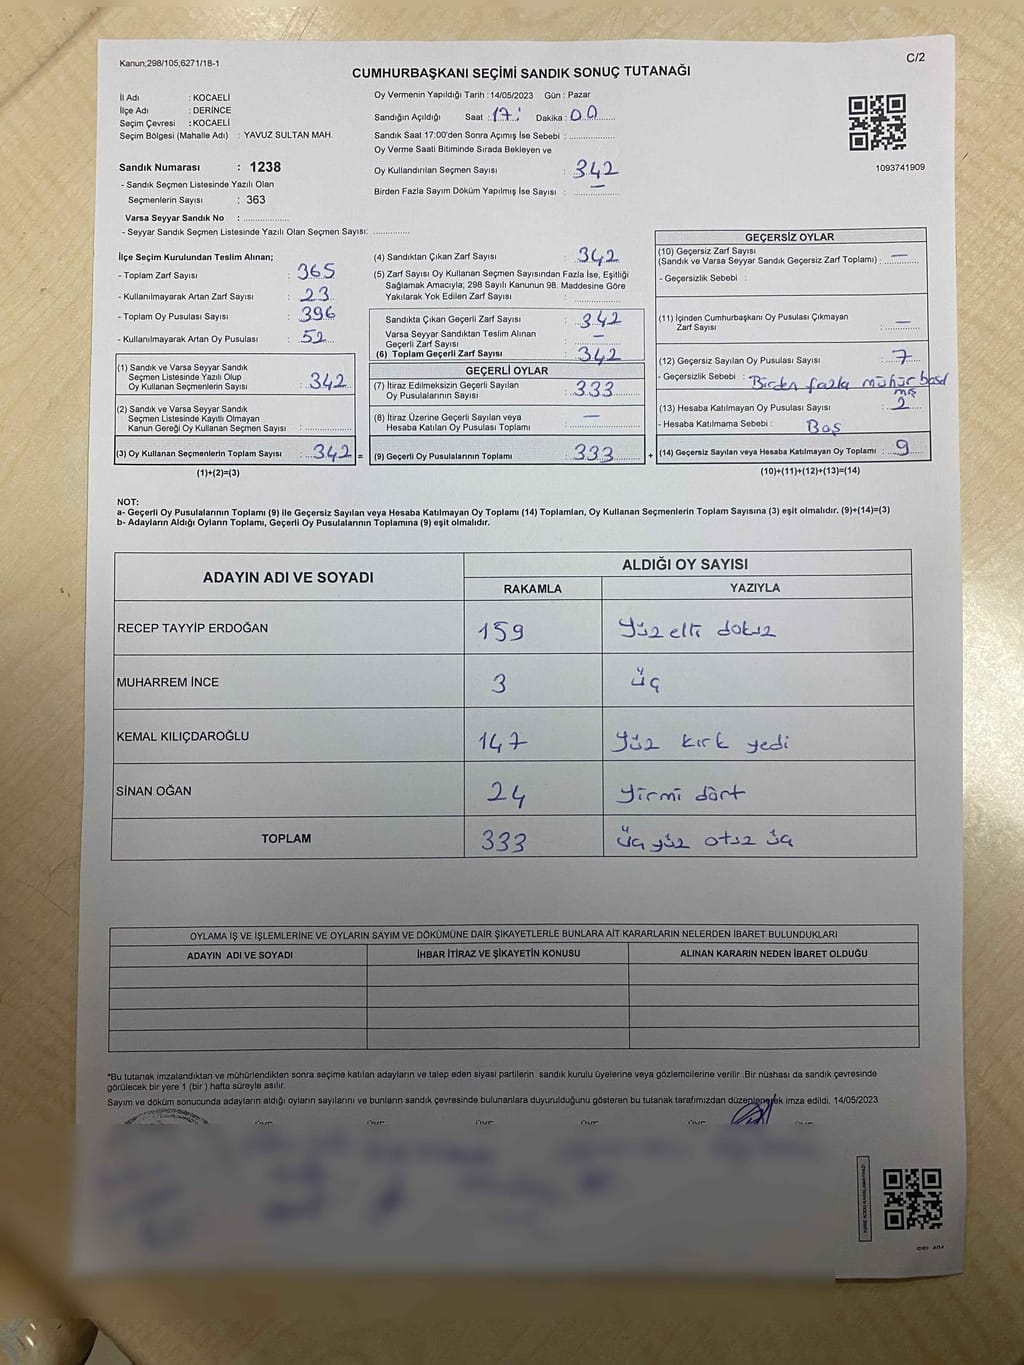 Kanun;298/105;6271/18-1
C/2
CUMHURBAŞKANI SEÇİMİ SANDIK SONUÇ TUTANAĞI
İl Adı : KOCAELİ
İlçe Adı : DERİNCE
Seçim Çevresi : KOCAELİ
Seçim Bölgesi (Mahalle Adı) : YAVUZ SULTAN MAH.
Sandık Numarası : 1238
- Sandık Seçmen Listesinde Yazılı Olan
Seçmenlerin Sayısı : 363
Varsa Seyyar Sandık No : ..................
- Seyyar Sandık Seçmen Listesinde Yazılı Olan Seçmen Sayısı: ..............
Oy Vermenin Yapıldığı Tarih : 14/05/2023 Gün : Pazar
Sandığın Açıldığı Saat : 17 : Dakika : 00
Sandık Saat 17:00'den Sonra Açımış İse Sebebi : ..................
Oy Verme Saati Bitiminde Sırada Bekleyen ve
Oy Kullandırılan Seçmen Sayısı : 342
Birden Fazla Sayım Döküm Yapılmış İse Sayısı : —
1093741909
İlçe Seçim Kurulundan Teslim Alınan;
- Toplam Zarf Sayısı : 365
- Kullanılmayarak Artan Zarf Sayısı : 23
- Toplam Oy Pusulası Sayısı : 396
- Kullanılmayarak Artan Oy Pusulası : 52
(1) Sandık ve Varsa Seyyar Sandık
Seçmen Listesinde Yazılı Olup
Oy Kullanan Seçmenlerin Sayısı : 342
(2) Sandık ve Varsa Seyyar Sandık
Seçmen Listesinde Kayıtlı Olmayan
Kanun Gereği Oy Kullanan Seçmen Sayısı : ..................
(3) Oy Kullanan Seçmenlerin Toplam Sayısı : 342 =
(1)+(2)=(3)
(4) Sandıktan Çıkan Zarf Sayısı : 342
(5) Zarf Sayısı Oy Kullanan Seçmen Sayısından Fazla İse, Eşitliği
Sağlamak Amacıyla; 298 Sayılı Kanunun 98. Maddesine Göre
Yakılarak Yok Edilen Zarf Sayısı : ..................
Sandıkta Çıkan Geçerli Zarf Sayısı : 342
Varsa Seyyar Sandıktan Teslim Alınan
Geçerli Zarf Sayısı : —
(6) Toplam Geçerli Zarf Sayısı : 342
GEÇERLİ OYLAR
(7) İtiraz Edilmeksizin Geçerli Sayılan
Oy Pusulalarının Sayısı : 333
(8) İtiraz Üzerine Geçerli Sayılan veya
Hesaba Katılan Oy Pusulası Toplamı : —
(9) Geçerli Oy Pusulalarının Toplamı : 333 +
GEÇERSİZ OYLAR
(10) Geçersiz Zarf Sayısı
(Sandık ve Varsa Seyyar Sandık Geçersiz Zarf Toplamı) : —
- Geçersizlik Sebebi :
(11) İçinden Cumhurbaşkanı Oy Pusulası Çıkmayan
Zarf Sayısı : —
(12) Geçersiz Sayılan Oy Pusulası Sayısı : 7
- Geçersizlik Sebebi : Birden fazla mühür basıl
mış
(13) Hesaba Katılmayan Oy Pusulası Sayısı : 2
- Hesaba Katılmama Sebebi : Boş
(14) Geçersiz Sayılan veya Hesaba Katılmayan Oy Toplamı : 9
(10)+(11)+(12)+(13)=(14)
NOT:
a- Geçerli Oy Pusulalarının Toplamı (9) ile Geçersiz Sayılan veya Hesaba Katılmayan Oy Toplamı (14) Toplamları, Oy Kullanan Seçmenlerin Toplam Sayısına (3) eşit olmalıdır. (9)+(14)=(3)
b- Adayların Aldığı Oyların Toplamı, Geçerli Oy Pusulalarının Toplamına (9) eşit olmalıdır.
ADAYIN ADI VE SOYADI
ALDIĞI OY SAYISI
RAKAMLA YAZIYLA
RECEP TAYYİP ERDOĞAN 159 Yüz elli dokuz
MUHARREM İNCE 3 üç
KEMAL KILIÇDAROĞLU 147 Yüz kırk yedi
SİNAN OĞAN 24 Yirmi dört
TOPLAM 333 üç yüz otuz üç
OYLAMA İŞ VE İŞLEMLERİNE VE OYLARIN SAYIM VE DÖKÜMÜNE DAİR ŞİKAYETLERLE BUNLARA AİT KARARLARIN NELERDEN İBARET BULUNDUKLARI
ADAYIN ADI VE SOYADI İHBAR İTİRAZ VE ŞİKAYETİN KONUSU ALINAN KARARIN NEDEN İBARET OLDUĞU
*Bu tutanak imzalandıktan ve mühürlendikten sonra seçime katılan adayların ve talep eden siyasi partilerin sandık kurulu üyelerine veya gözlemcilerine verilir .Bir nüshası da sandık çevresinde
görülecek bir yere 1 (bir ) hafta süreyle asılır.
Sayım ve döküm sonucunda adayların aldığı oyların sayılarını ve bunların sandık çevresinde bulunanlara duyurulduğunu gösteren bu tutanak tarafımızdan düzenlenerek imza edildi. 14/05/2023
ÜYE ÜYE ÜYE ÜYE ÜYE ÜYE
KARE KODU KARALAMAYINIZ!